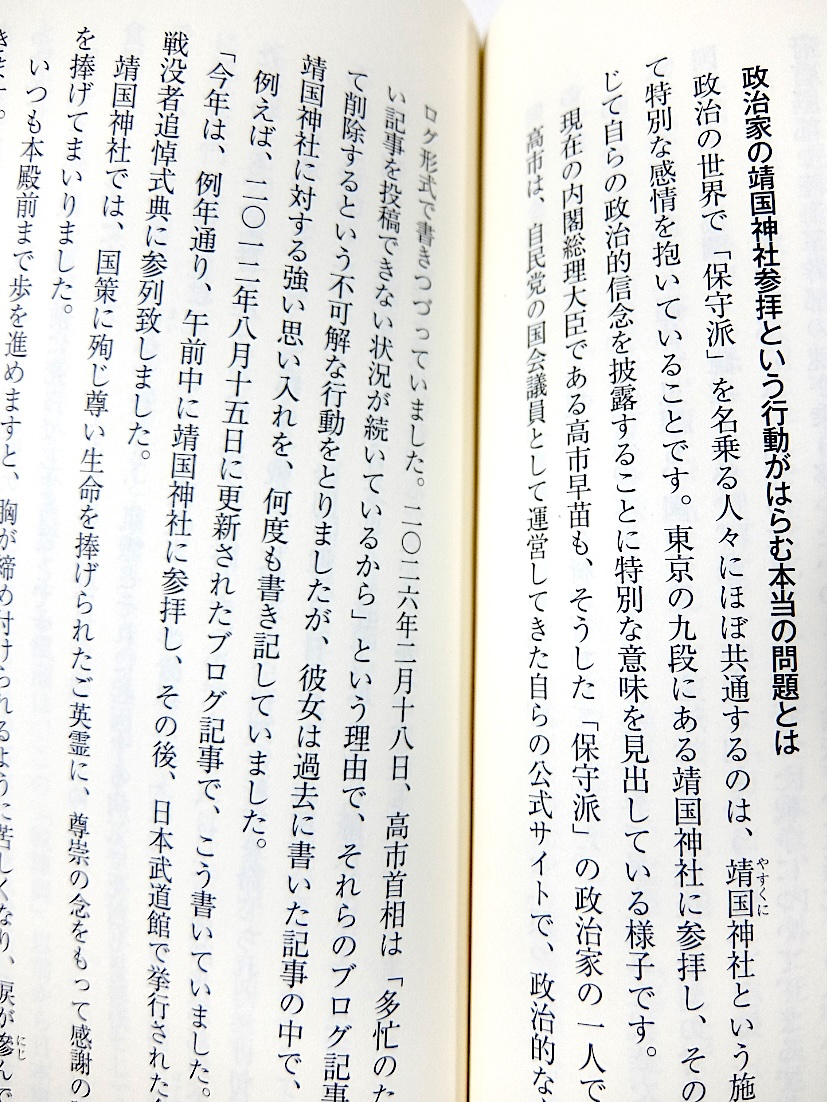 政治家の靖国神社参拝という行動がはらむ本当の問題とは
政治の世界で「保守派」を名乗る人々にほぼ共通するのは、靖国神社という施
やすくに
て特別な感情を抱いていることです。東京の九段にある靖国神社に参拝し、その
じて自らの政治的信念を披露することに特別な意味を見出している様子です。
現在の内閣総理大臣である高市早苗も、そうした「保守派」の政治家の一人で
高市は、自民党の国会議員として運営してきた自らの公式サイトで、政治的な
ログ形式で書きつづっていました。二〇二六年二月十八日、高市首相は「多忙のた
い記事を投稿できない状況が続いているから」という理由で、それらのブログ記事
て削除するという不可解な行動をとりましたが、彼女は過去に書いた記事の中で、
靖国神社に対する強い思い入れを、何度も書き記していました。
例えば、二〇一二年八月十五日に更新されたブログ記事で、こう書いていました。
「今年は、例年通り、午前中に靖国神社に参拝し、その後、日本武道館で挙行された
戦没者追悼式典に参列致しました。
靖国神社では、国策に殉じ尊い生命を捧げられたご英霊に、尊崇の念をもって感謝の
を捧げてまいりました。
いつも本殿前まで歩を進めますと、胸が締め付けられるように苦しくなり、涙が滲んで
にじ
きます。